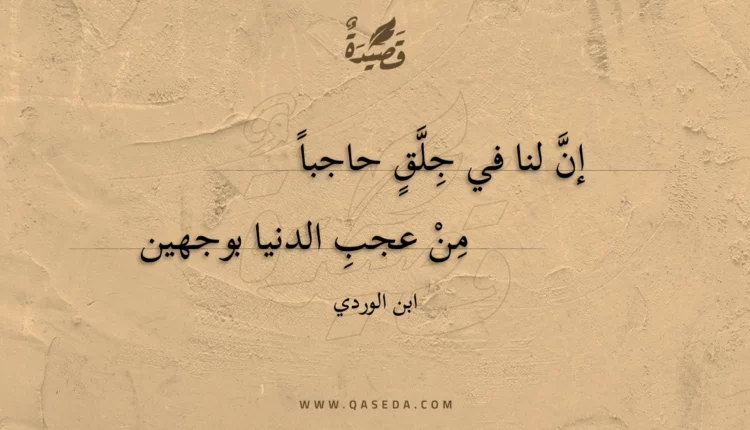 قَصِيْدَةٌ
إنَّ لنا في جِلَّقٍ حاجباً
مِنْ عجبِ الدنيا بوجهين
ابن الوردي
WWW.QASEDA.COM